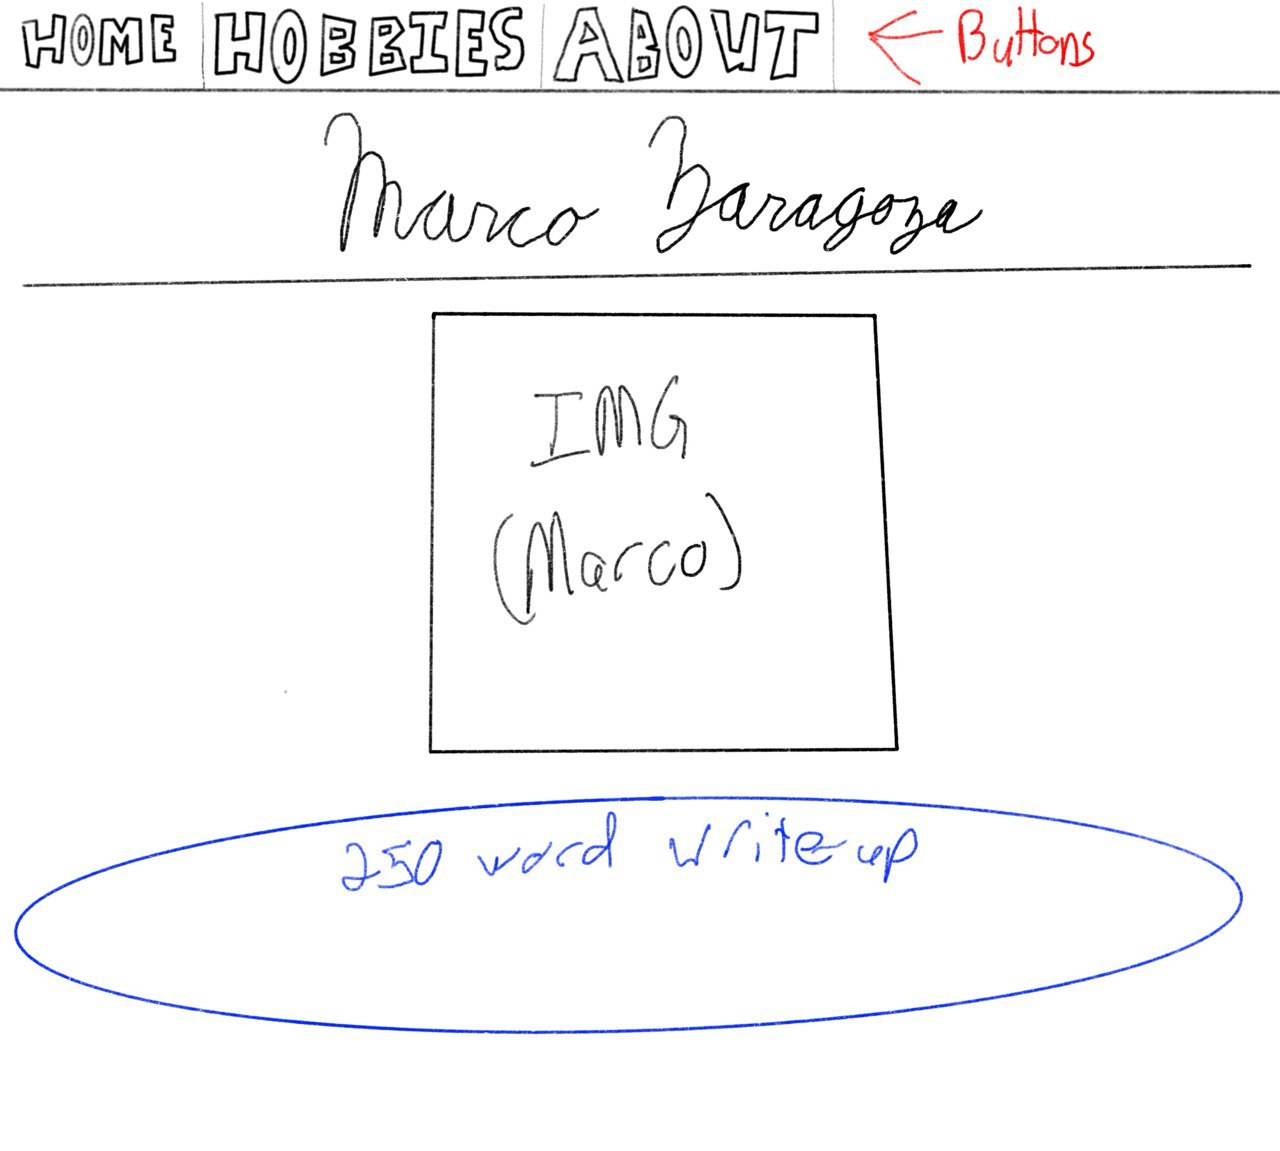 HOME HOBBIES ABOUT Buttons
Marco Zaragoza
IMG
(Marco)
250 word write-up